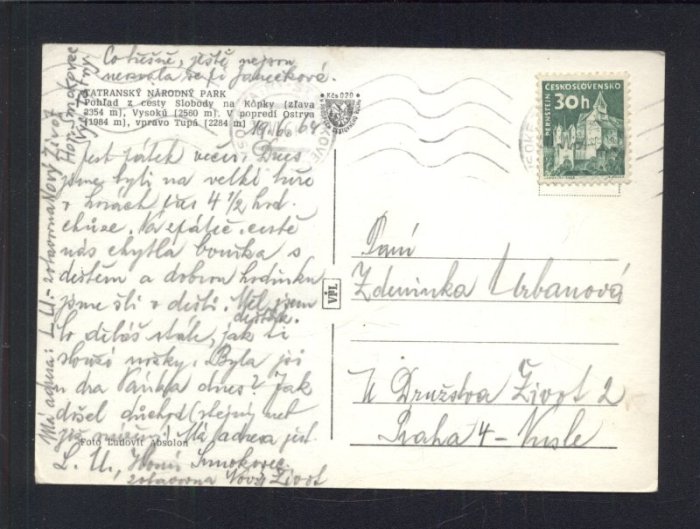 Co tušně, ještě nejsou
nezvala se fi Janečková.
TATRANSKÝ NÁRODNÝ PARK
Pohľad z cesty Slobody na Kôpky (zľava
2354 m), Vysokú (2560 m). V popredí Ostrva
(1984 m), vpravo Tupá (2284 m)
Kčs 0,20
19. 6. 64
Jest pátek večer. Dnes
jsme byli na velké túře
v horách přes 4 1/2 hod.
chůze. Na zpáteč. cestě
nás chytla bouřka s
deštěm a dobrou hodinku
jsme šli v dešti. Měl jsem
deštník.
Co děláš stále, jak ti
slouží nožky. Byla jsi
u dra Vaňka dnes? Jak
došel důchod (stejný net
Má adresa jest
L. U., Horní Smokovec
zotavovna Nový Život
Foto Ľudovít Absolon
Má adresa: L. U. - zotavovna Nový Život
Hor. Smokovec
Vys. Tatry
VPL
ČESKOSLOVENSKO
30h
PERNŠTEJN
Paní
Zdeninka Urbanová
U Družstva Život 2
Praha 4 - Nusle